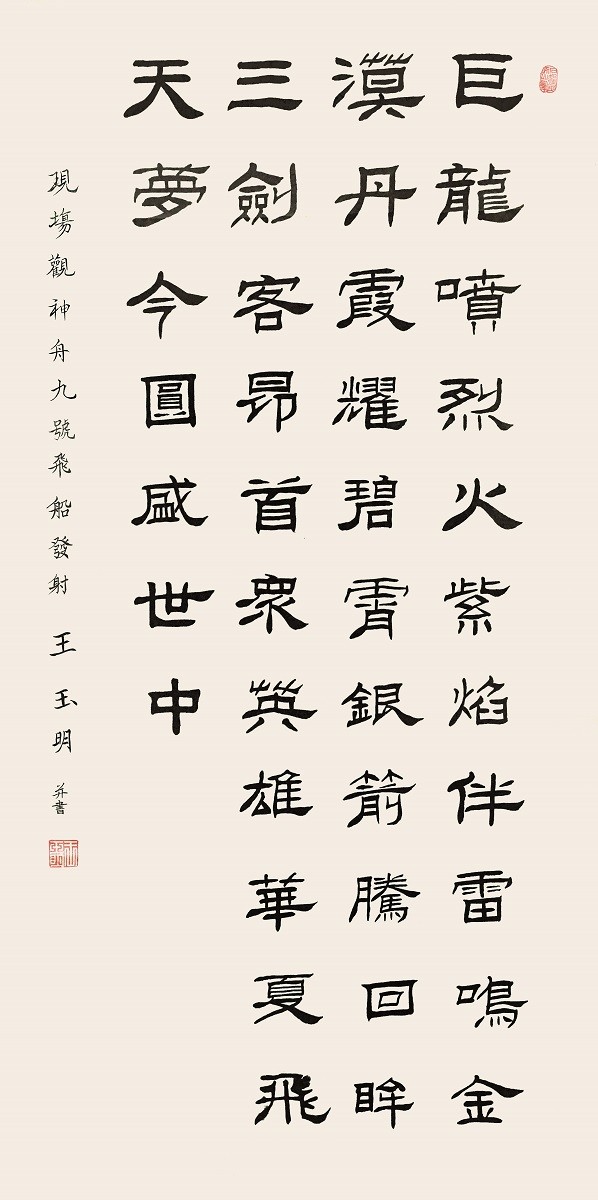 巨龍噴烈火紫焰伴雷鳴金
漠丹霞耀碧霄銀箭騰回眸
三劍客昂首衆英雄華夏飛
天夢今圓盛世中
現場觀神舟九號飛船發射 王玉明 并書